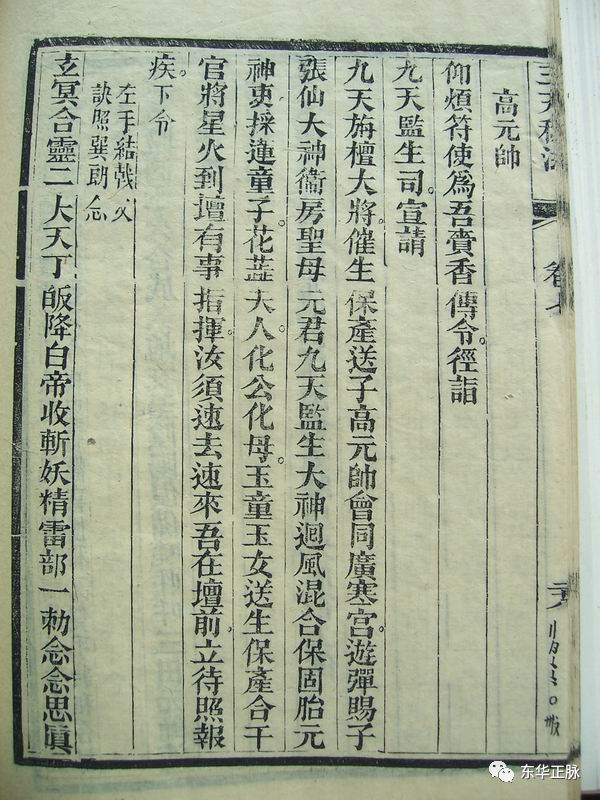 高元帥
仰煩符使爲吾賫香傳令。徑詣
九天監生司。宣請
九天旃檀大將。催生保產送子高元帥會同廣塞宮遊彈賜子
張仙大神衞房聖母元君九天監生大神迴風混合保固胎元
神吏採違童子。花蓋夫人化公化母。玉童玉女送生保產合干
官將星火到壇有事指揮。汝須速去速來吾在壇前。立待照報
疾。下令
左手結戟火
訣照巽朗念
玄冥合靈二大天丁皈降白帝收斬妖精雷部一勅念念思眞
卷七
东华正脉